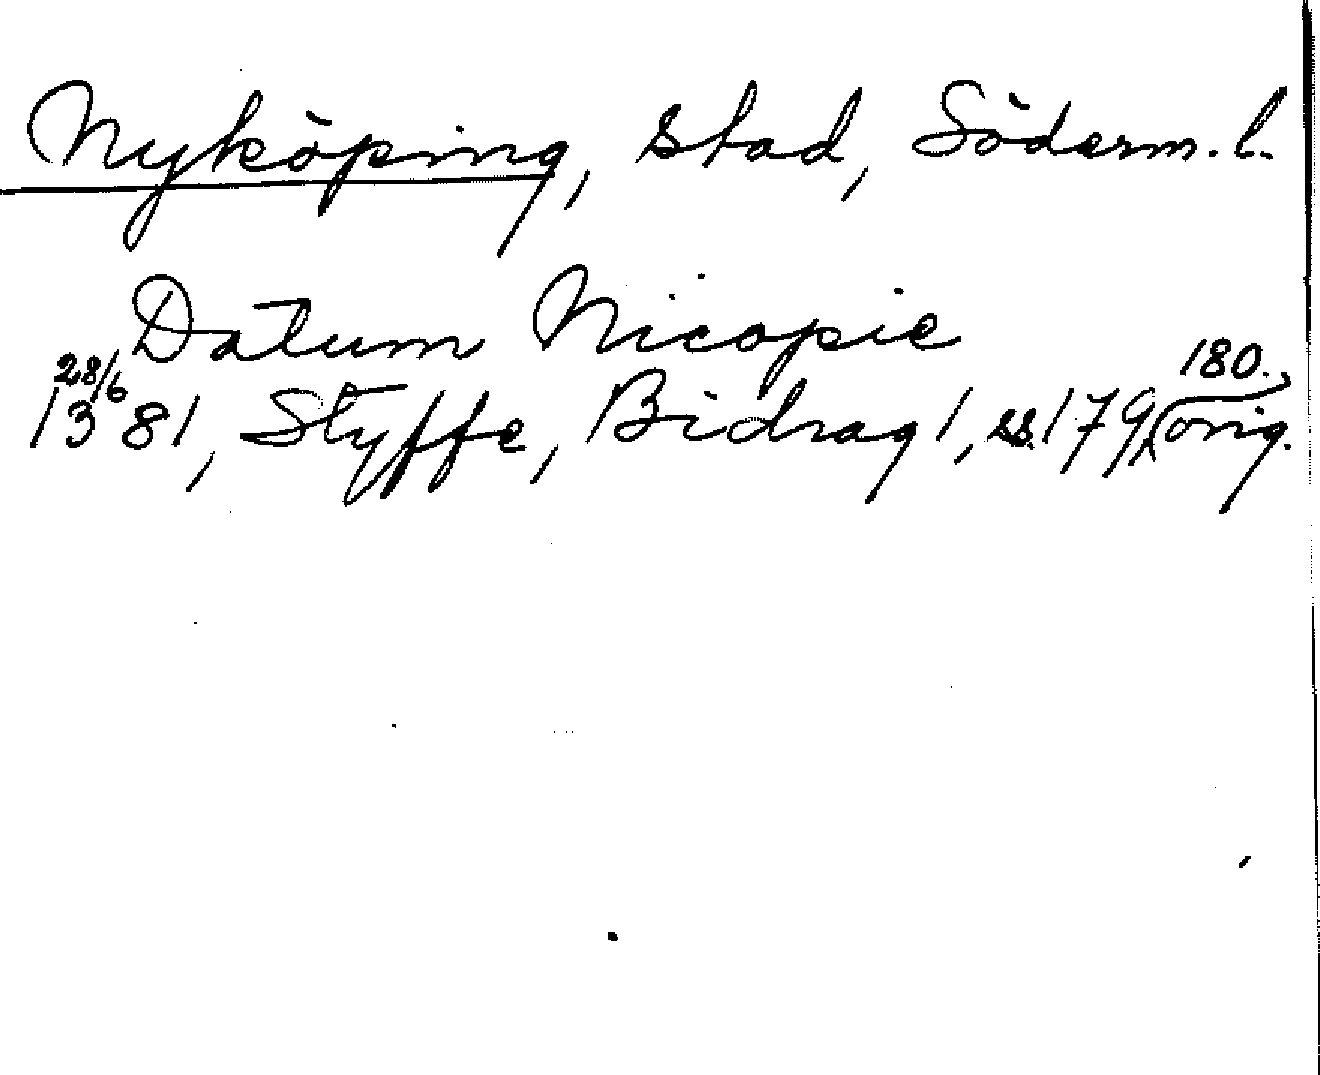 Nyköping, stad, Söderm. l.
Datum Nicopie
28/6 1381, Styffe, Bidrag 1, ss. 179, 180., orig.